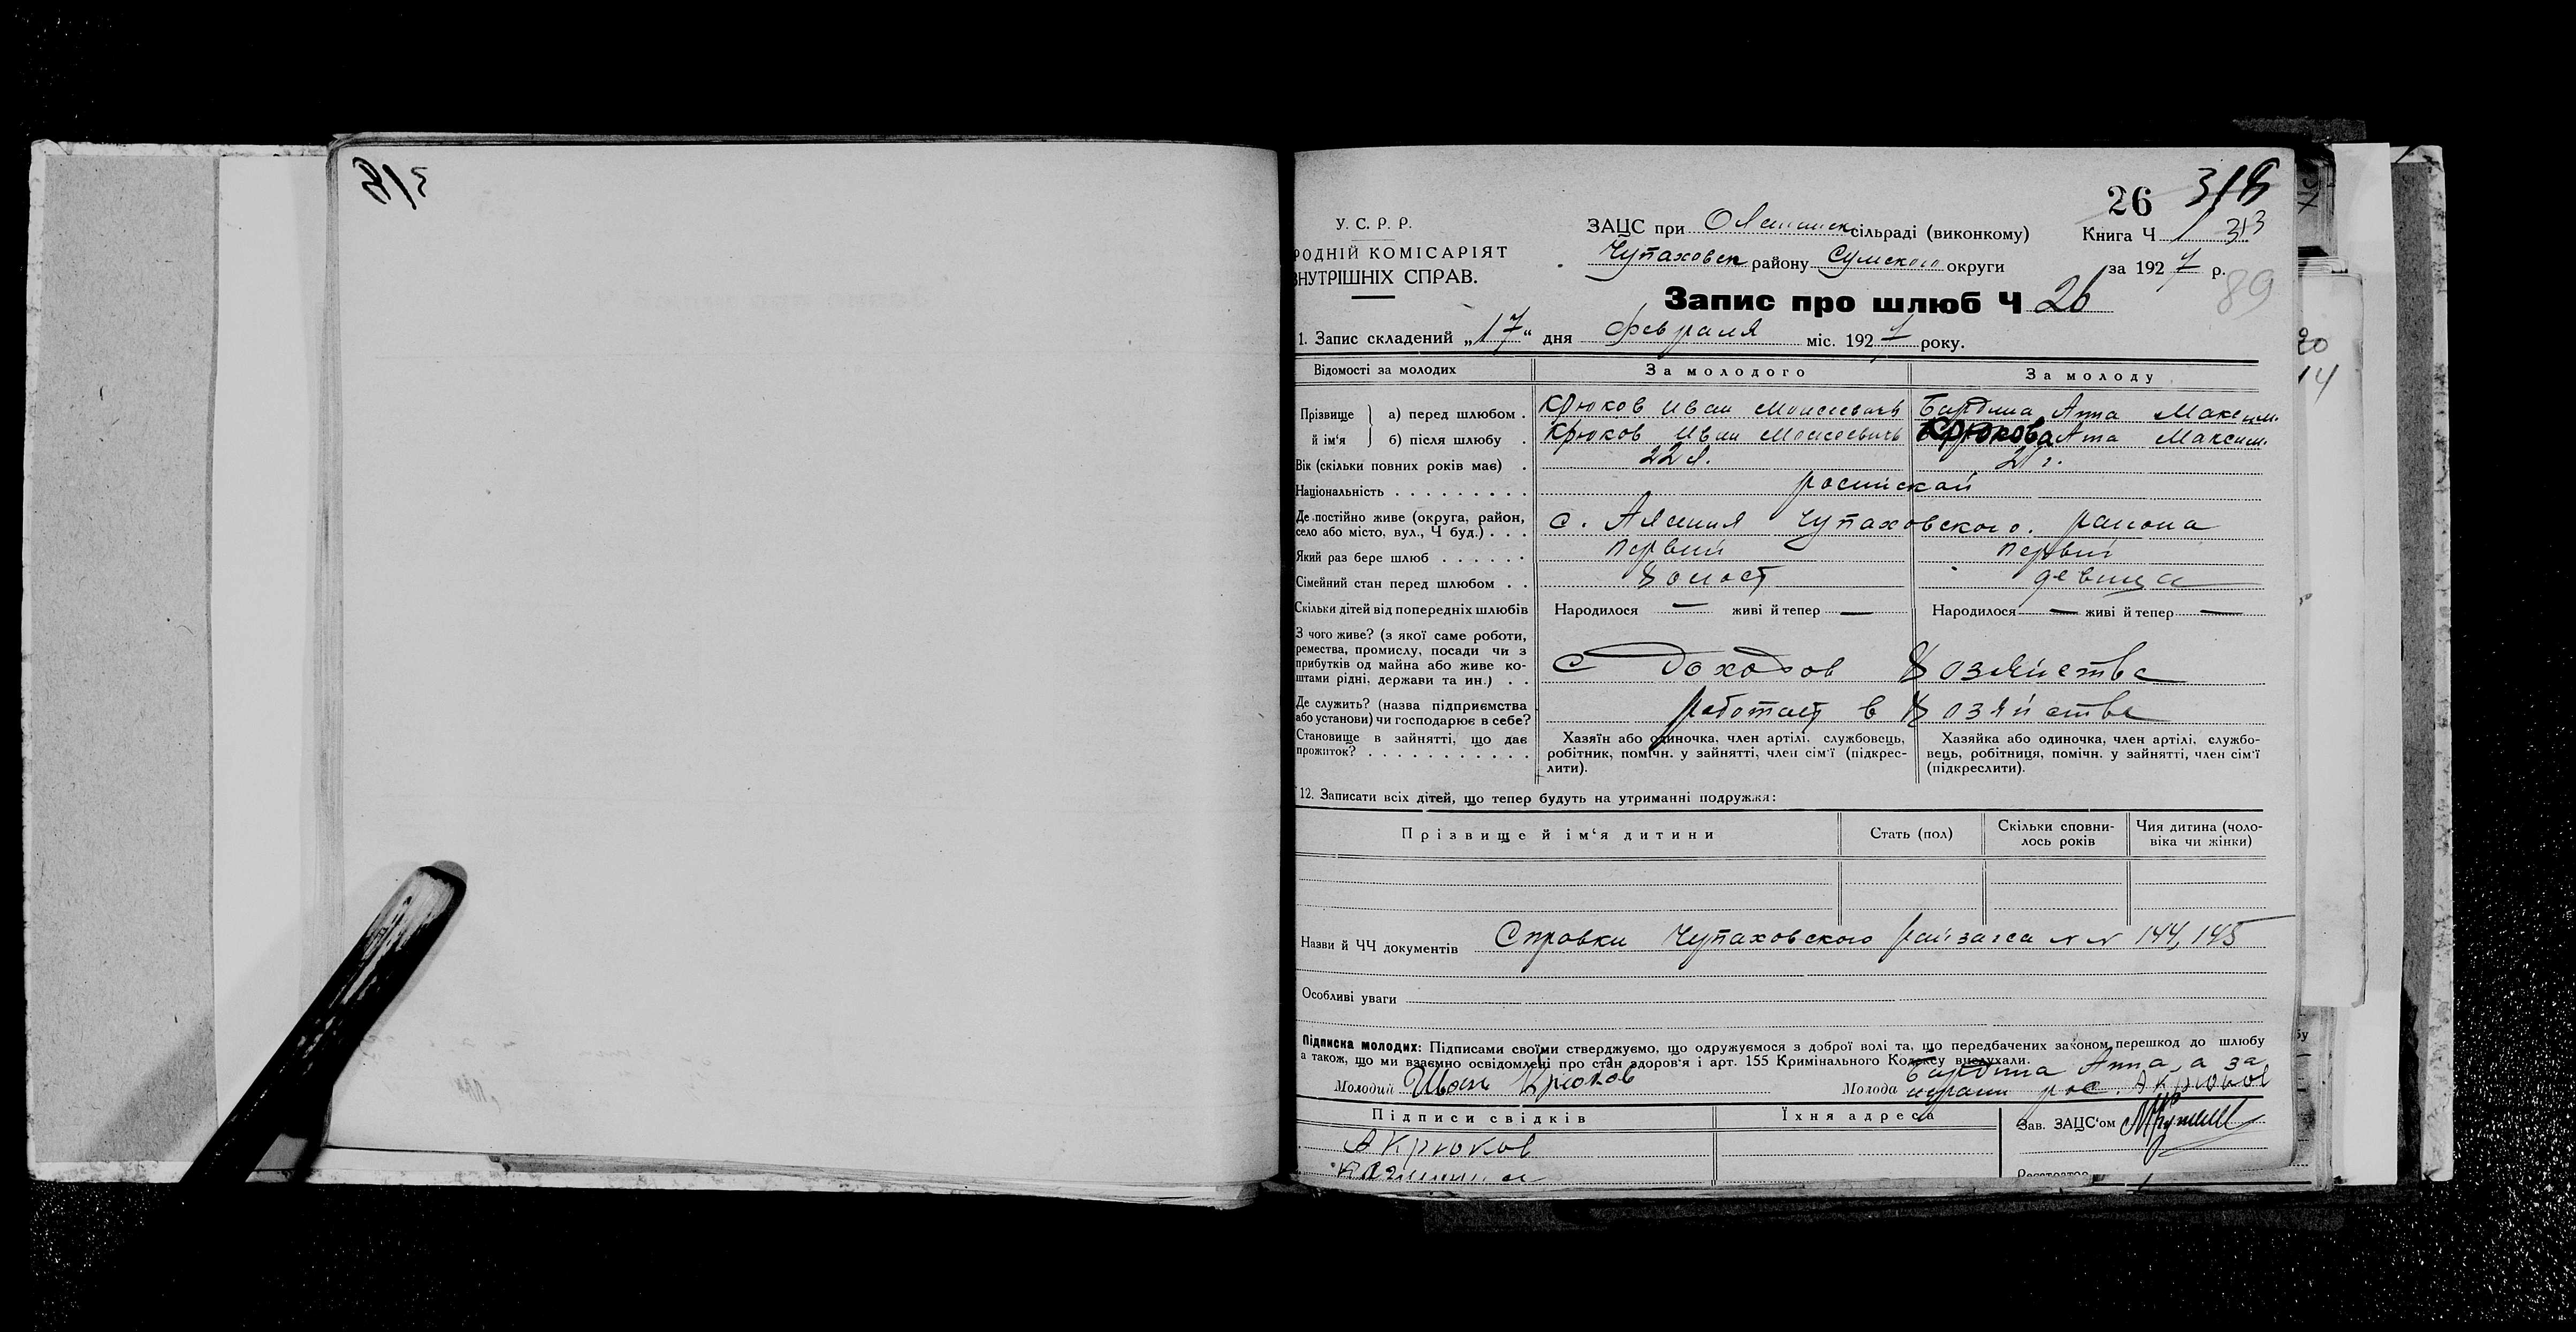 26 318
У. С. Р. Р.
РОДНІЙ КОМІСАРІЯТ
ВНУТРІШНІХ СПРАВ.
ЗАЦС при сільраді (виконкому) Книга Ч 1 313
Чупаховск району Сумского округи за 1927 р.
89
Запис про шлюб Ч 26
1. Запис складений „17“ дня февраля міс. 1927 року.
Відомості за молодих За молодого За молоду
Прізвище й ім'я а) перед шлюбом . Крюков Иван Моисеевичь Анна Максим.
б) після шлюбу . Крюков Иван Моисеевичь Крюкова Анна Максим.
Вік (скільки повних років має) . 22 л. 21 г.
Національність . . . . . . . . . российской
Де постійно живе (округа, район,
село або місто, вул., Ч буд.) . . . с. Чупаховского района
Який раз бере шлюб . . . . . . первий первий
Сімейний стан перед шлюбом . . Холост девица
Скільки дітей від попередніх шлюбів Народилося — живі й тепер — Народилося — живі й тепер —
З чого живе? (з якої саме роботи,
ремества, промислу, посади чи з
прибутків од майна або живе ко-
штами рідні, держави та ин.) . . С Доходов Хозяйства
Де служить? (назва підприємства
або установи) чи господарює в себе? работает в Хозяйстве
Становище в зайнятті, що дає
прожиток? . . . . . . . . . . .
Хазяїн або одиночка, член артілі, службовець,
робітник, помічн. у зайнятті, член сім'ї (підкрес-
лити).
Хазяйка або одиночка, член артілі, службо-
вець, робітниця, помічн. у зайнятті, член сім'ї
(підкреслити).
12. Записати всіх дітей, що тепер будуть на утриманні подружжя:
Прізвище й ім'я дитини Стать (пол) Скільки сповни-
лось років Чия дитина (чоло-
віка чи жінки)
Назви й ЧЧ документів Справки Чупаховского райзагса №№ 144, 145
Особливі уваги
Підписка молодих: Підписами своїми стверджуємо, що одружуємося з доброї волі та, що передбачених законом перешкод до шлюбу
а також, що ми взаємно освідомлені про стан здоров'я і арт. 155 Кримінального Кодексу вислухали.
Молодий Иван Крюков Молода Анна, а за
рос. А Крюков
Підписи свідків Їхня адреса Зав. ЗАЦС'ом
А Крюков
Реєстратор
20
14